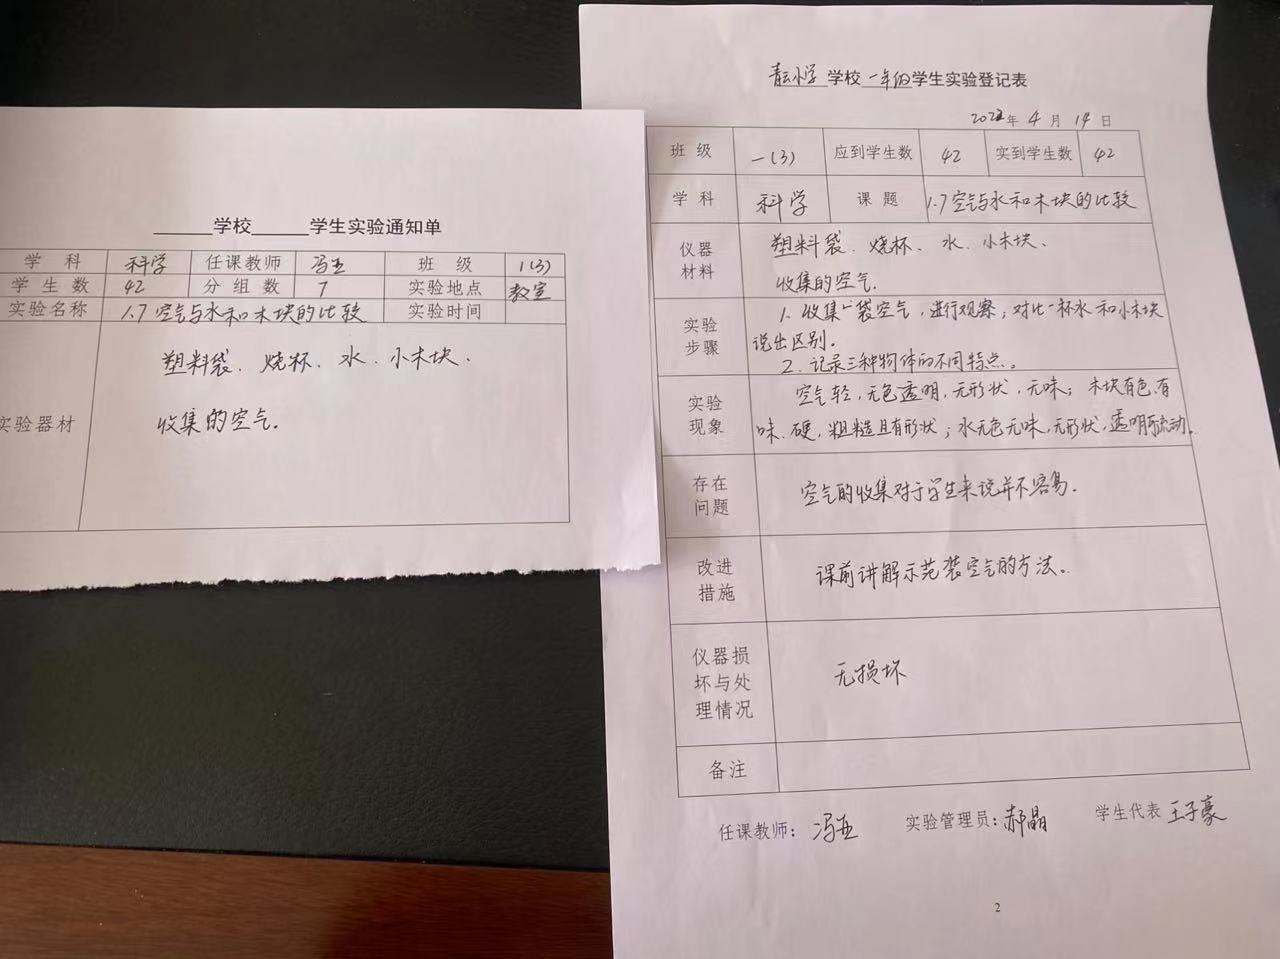 ______学校______学生实验通知单
学科 科学 任课教师 冯亚 班级 1(3)
学生数 42 分组数 7 实验地点 教室
实验名称 1.7空气与水和木块的比较 实验时间
实验器材
塑料袋、烧杯、水、小木块、
收集的空气.
学校 学生实验登记表
年 4 月 14 日
班级 一(3) 应到学生数 42 实到学生数 42
学科 科学 课题 1.7空气与水和木块的比较
仪器材料
塑料袋、烧杯、水、小木块、
收集的空气.
实验步骤
1. 收集一袋空气,进行观察,对比一杯水和小木块
说出区别。
2. 记录三种物体的不同特点。
实验现象
空气轻,无色透明,无形状,无味;木块有色、有
味、硬,粗糙且有形状;水无色无味,无形状,透明流动。
存在问题
空气的收集对于学生来说并不容易.
改进措施
课前讲解示范装空气的方法。
仪器损坏与处理情况
无损坏
备注
任课教师: 冯亚 实验管理员: 郝晶 学生代表 王子豪
2